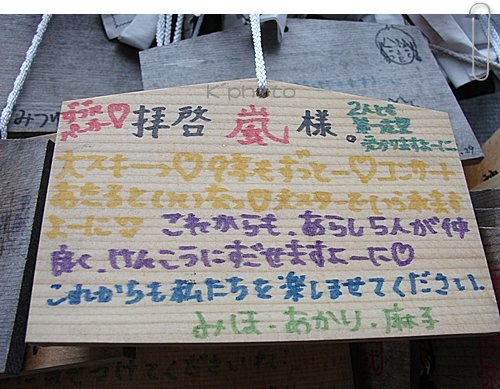 K photo
拝啓 嵐 様。
2人とも
第一志望
大スキーっ♡9年もずっとー♡コンサート
あたるといいなっ♡大スターでいられます
よーに♡ これからも、あらし5人が仲
良く、けんこうにすごせますよーに♡
これからも私たちを楽しませてください。
みほ・あかり・麻子
みつ
29
てください